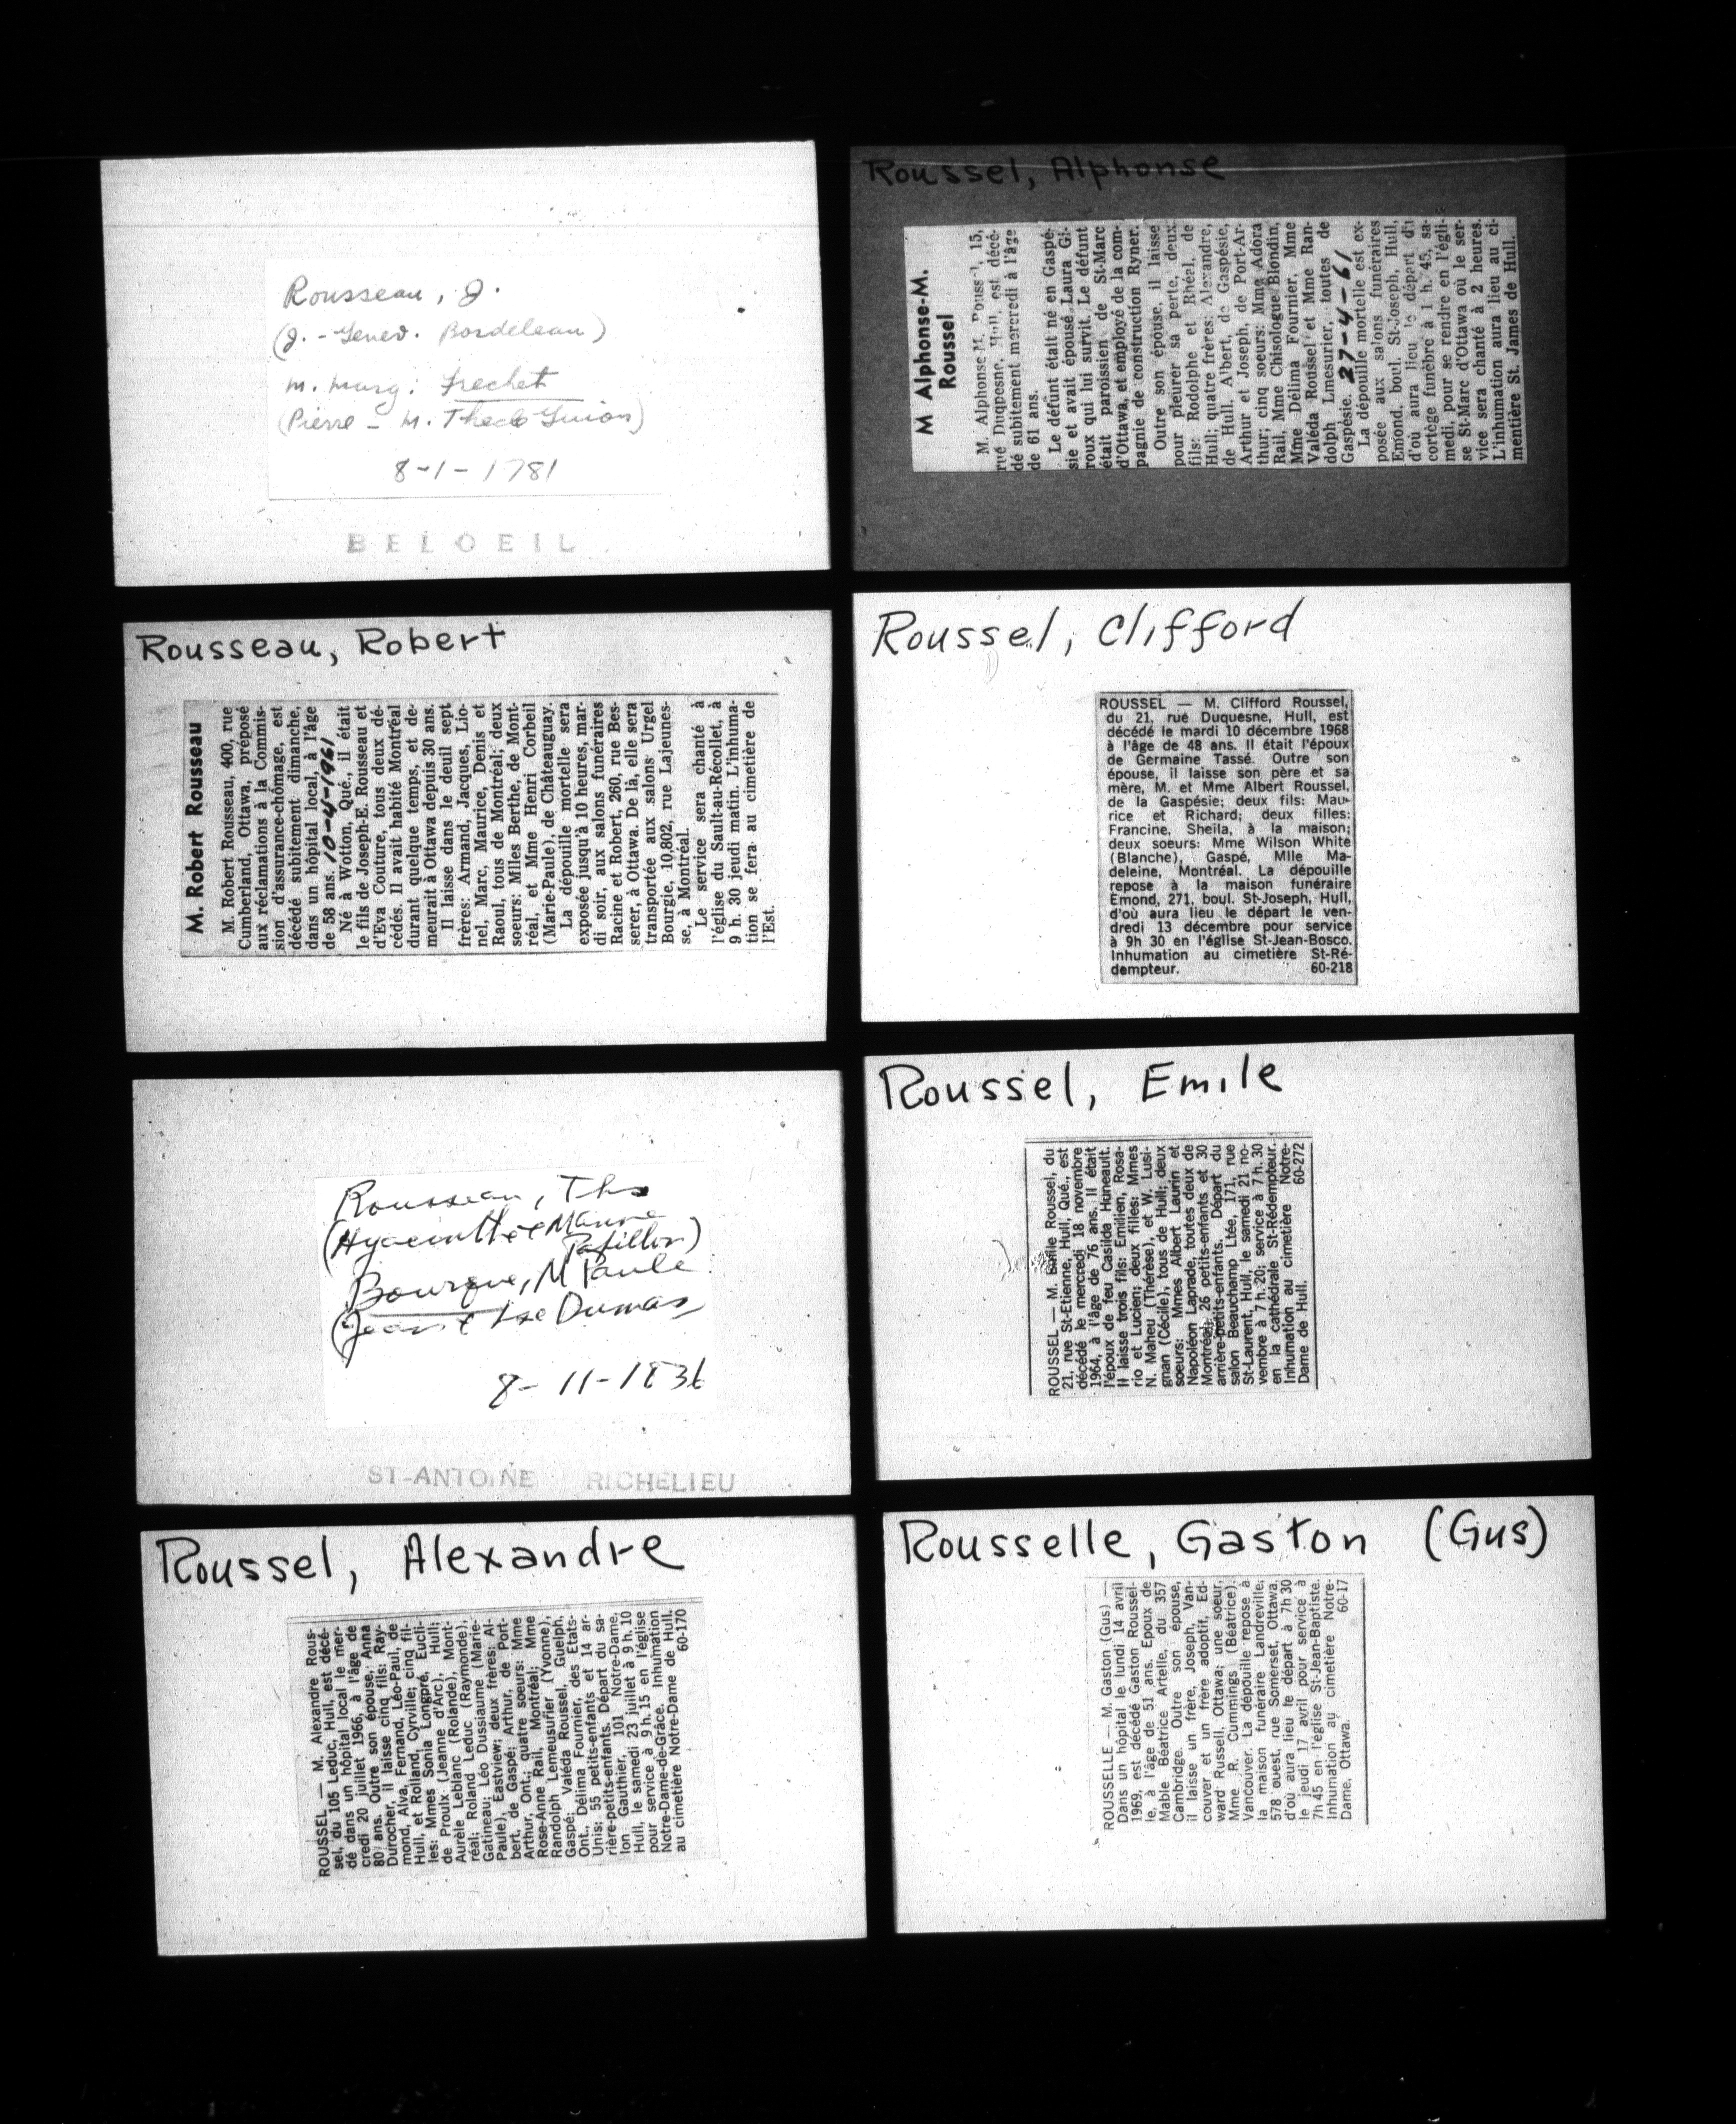 Rousseau, J.
(J. - Genev. Bordeleau)
m. Marg: Frechet
(Pierre - M. Thecle Guion)
8-1-1781
BELOEIL
Rousseau, Robert
M. Robert Rousseau
M. Robert Rousseau, 400, rue
Cumberland, Ottawa, préposé
aux réclamations à la Commis-
sion d'assurance-chômage, est
décédé subitement dimanche,
dans un hôpital local, à l'âge
de 58 ans. 10-4-1961
Né à Wotton, Qué., il était
le fils de Joseph-E. Rousseau et
d'Eva Couture, tous deux dé-
cédés. Il avait habité Montréal
durant quelque temps, et de-
meurait à Ottawa depuis 30 ans.
Il laisse dans le deuil sept
frères: Armand, Jacques, Lio-
nel, Marc, Maurice, Denis et
Raoul, tous de Montréal; deux
soeurs: Mlles Berthe, de Mont-
réal, et Mme Henri Corbeil
(Marie-Paule), de Châteauguay.
La dépouille mortelle sera
exposée jusqu'à 10 heures, mar-
di soir, aux salons funéraires
Racine et Robert, 260, rue Bes-
serer, à Ottawa. De là, elle sera
transportée aux salons Urgel
Bourgie, 10,802, rue Lajeunes-
se, à Montréal.
Le service sera chanté à
l'église du Sault-au-Récollet, à
9 h. 30 jeudi matin. L'inhuma-
tion se fera au cimetière de
l'Est.
Rousseau, Ths
(Hyacinthe & Manne
Papillon)
Bourque, M Paule
(Jean & Lse Dumas
8-11-1836
ST-ANTOINE RICHELIEU
Roussel, Alexandre
ROUSSEL — M. Alexandre Rous-
sel, du 105 Leduc, Hull, est décé-
dé dans un hôpital local le mer-
credi 20 juillet 1966, à l'âge de
80 ans. Outre son épouse, Anna
Durocher, il laisse cinq fils: Ray-
mond, Alva, Fernand, Léo-Paul, de
Hull, et Rolland, Cyrville; cinq fil-
les: Mmes Sonia Longpré, Eucli-
de Proulx (Jeanne d'Arc), Hull;
Aurèle Leblanc (Rolande), Mont-
réal; Roland Leduc (Raymonde),
Gatineau; Léo Dussiaume (Marie-
Paule), Eastview; deux frères: Al-
bert, de Gaspé; Arthur, de Port-
Arthur, Ont.; quatre soeurs: Mme
Rose-Anne Rail, Montréal; Mme
Randolph Lemeusurier (Yvonne),
Gaspé; Valéda Roussel, Guelph,
Ont., Délima Fournier, des Etats-
Unis; 55 petits-enfants et 14 ar-
rière-petits-enfants. Départ du sa-
lon Gauthier, 101, Notre-Dame,
Hull, le samedi 23 juillet à 9 h. 10
pour service à 9 h. 15 en l'église
Notre-Dame-de-Grâce. Inhumation
au cimetière Notre-Dame de Hull.
60-170
Roussel, Alphonse
M Alphonse-M.
Roussel
M. Alphonse M. Roussel, 15,
rue Duquesne, Hull, est décé-
dé subitement mercredi à l'âge
de 61 ans.
Le défunt était né en Gaspé-
sie et avait épousé Laura Gi-
roux qui lui survit. Le défunt
était paroissien de St-Marc
d'Ottawa, et employé de la com-
pagnie de construction Ryner.
Outre son épouse, il laisse
pour pleurer sa perte, deux
fils: Rodolphe et Rhéal, de
Hull; quatre frères: Alexandre,
de Hull, Albert, de Gaspésie,
Arthur et Joseph, de Port-Ar-
thur; cinq soeurs: Mme Adora
Rail, Mme Chisologue Blondin,
Mme Délima Fournier, Mme
Valéda Roussel et Mme Ran-
dolph Lmesurier, toutes de
Gaspésie. 27-4-61
La dépouille mortelle est ex-
posée aux salons funéraires
Emond, boul. St-Joseph, Hull,
d'où aura lieu le départ du
cortège funèbre à 1 h. 45, sa-
medi, pour se rendre en l'égli-
se St-Marc d'Ottawa où le ser-
vice sera chanté à 2 heures.
L'inhumation aura lieu au ci-
mentière St. James de Hull.
Roussel, Clifford
ROUSSEL — M. Clifford Roussel,
du 21, rue Duquesne, Hull, est
décédé le mardi 10 décembre 1968
à l'âge de 48 ans. Il était l'époux
de Germaine Tassé. Outre son
épouse, il laisse son père et sa
mère, M. et Mme Albert Roussel,
de la Gaspésie; deux fils: Mau-
rice et Richard; deux filles:
Francine, Sheila, à la maison;
deux soeurs: Mme Wilson White
(Blanche), Gaspé, Mlle Ma-
deleine, Montréal. La dépouille
repose à la maison funéraire
Emond, 271, boul. St-Joseph, Hull,
d'où aura lieu le départ le ven-
dredi 13 décembre pour service
à 9h 30 en l'église St-Jean-Bosco.
Inhumation au cimetière St-Ré-
dempteur. 60-218
Roussel, Emile
ROUSSEL — M. Emile Roussel, du
21, rue St-Etienne, Hull, Qué., est
décédé le mercredi 18 novembre
1964, à l'âge de 76 ans. Il était
l'époux de feu Casilda Huneault.
Il laisse trois fils: Emilien, Rosa-
rio et Lucien; deux filles: Mmes
N. Maheu (Thérèse), et W. Lusi-
gnan (Cécile), tous de Hull; deux
soeurs: Mmes Albert Laurin et
Napoléon Laprade, toutes deux de
Montréal; 26 petits-enfants et 30
arrière-petits-enfants. Départ du
salon Beauchamp Ltée, 171, rue
St-Laurent, Hull, le samedi 21 no-
vembre à 7 h. 20; service à 7 h. 30
en la cathédrale St-Rédempteur.
Inhumation au cimetière Notre-
Dame de Hull. 60-272
Rousselle, Gaston (Gus)
ROUSSELLE — M. Gaston (Gus) —
Dans un hôpital le lundi 14 avril
1969, est décédé Gaston Roussel-
le, à l'âge de 51 ans. Epoux de
Mable Béatrice Artelle, du 357
Cambridge. Outre son épouse,
il laisse un frère, Joseph, Van-
couver et un frère adoptif, Ed-
ward Russell, Ottawa; une soeur,
Mme R. Cumming (Béatrice),
Vancouver. La dépouille repose à
la maison funéraire Landreville,
578 ouest, rue Somerset, Ottawa,
d'où aura lieu le départ à 7h 30
le jeudi 17 avril pour service à
7h 45 en l'église St-Jean-Baptiste.
Inhumation au cimetière Notre-
Dame, Ottawa. 60-17